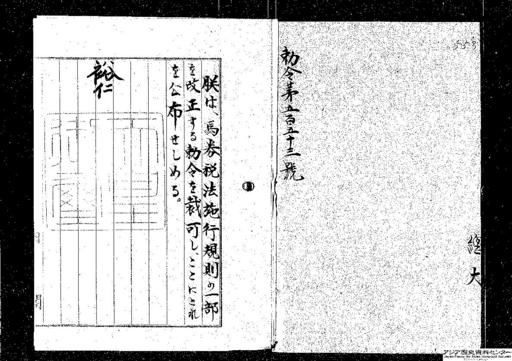 勅令第五百五十三號
朕は、馬券税法施行規則の一部
を改正する勅令を裁可し、ここにこれ
を公布せしめる。
裕仁
大
アジア歴史資料センター
Japan Center for Asian Historical Records